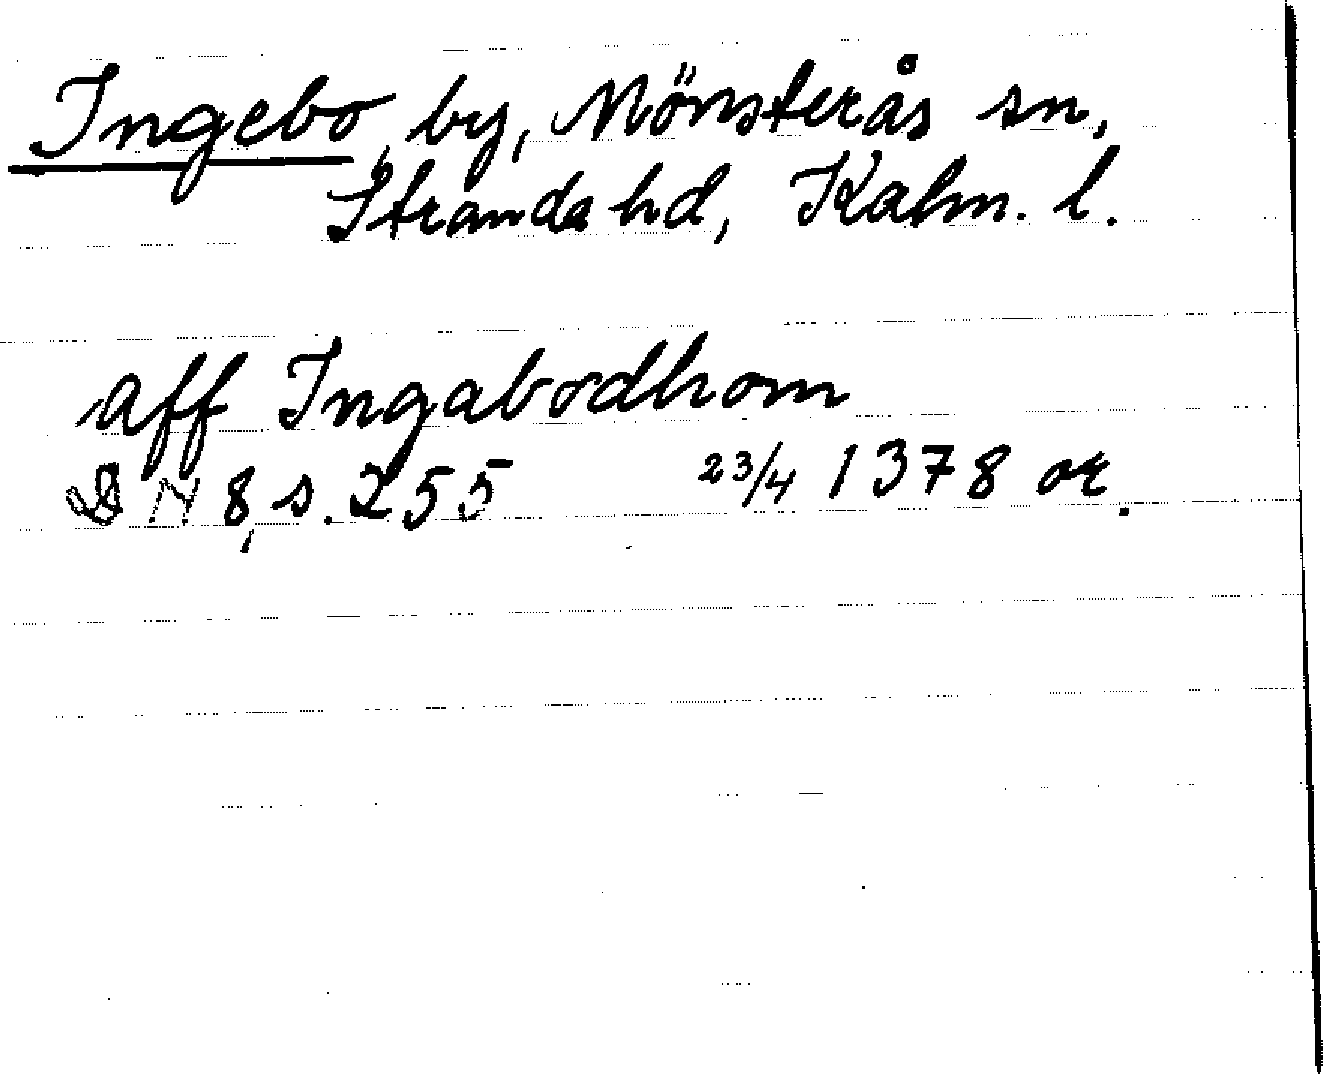 Ingebo, by, Mönsterås sn,
Stranda hd, Kalm. l.
aff Ingabodhom
DN 8, s. 255 23/4 1378 or.